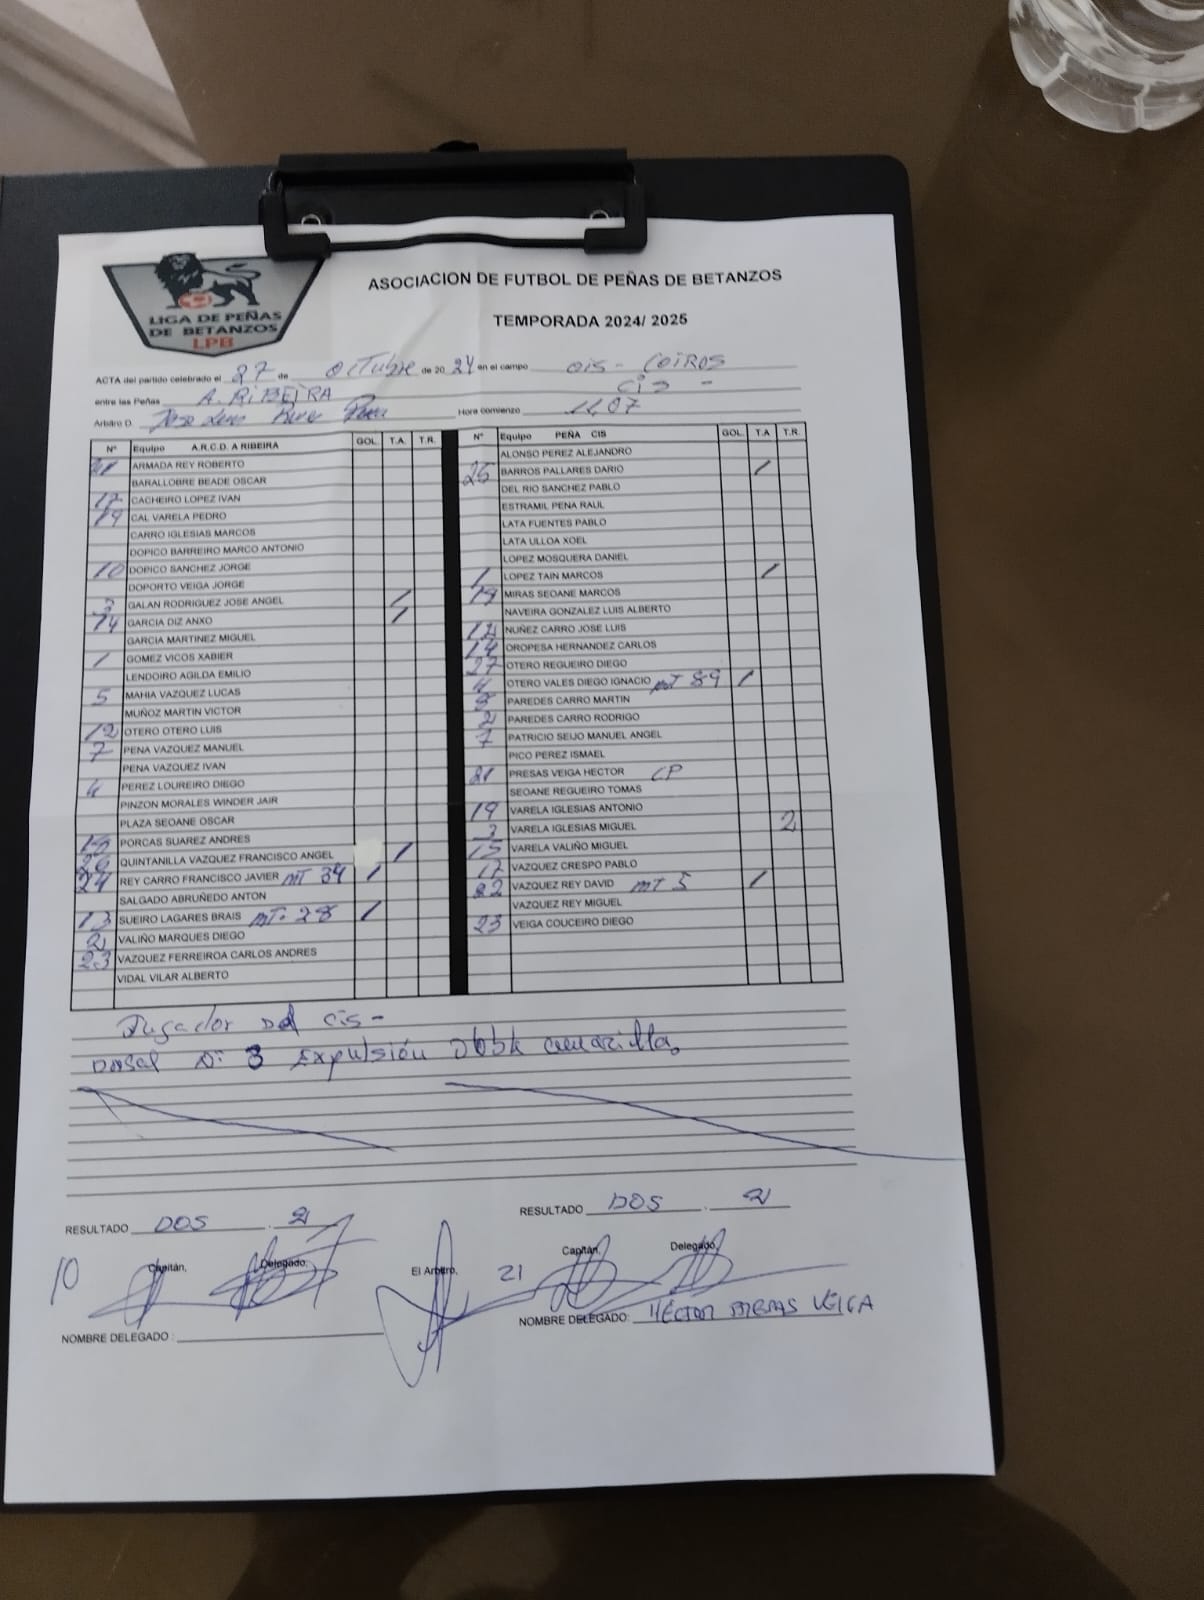 LIGA DE PEÑAS
DE BETANZOS
LPB
ASOCIACION DE FUTBOL DE PEÑAS DE BETANZOS
TEMPORADA 2024/ 2025
ACTA del partido celebrado el 27 de Octubre de 20 24 en el campo OIS - COIROS
entre las Peñas A. RIBEIRA CIS -
Arbitro D. Jose Luis Hora comienzo 11,07
Nº Equipo A.R.C.D. A RIBEIRA GOL. T.A. T.R.
ARMADA REY ROBERTO
BARALLOBRE BEADE OSCAR
17 CACHEIRO LOPEZ IVAN
19 CAL VARELA PEDRO
CARRO IGLESIAS MARCOS
DOPICO BARREIRO MARCO ANTONIO
10 DOPICO SANCHEZ JORGE
DOPORTO VEIGA JORGE
3 GALAN RODRIGUEZ JOSE ANGEL /
14 GARCIA DIZ ANXO /
GARCIA MARTINEZ MIGUEL
1 GOMEZ VICOS XABIER
LENDOIRO AGILDA EMILIO
5 MAHIA VAZQUEZ LUCAS
MUÑOZ MARTIN VICTOR
12 OTERO OTERO LUIS
7 PENA VAZQUEZ MANUEL
PENA VAZQUEZ IVAN
4 PEREZ LOUREIRO DIEGO
PINZON MORALES WINDER JAIR
PLAZA SEOANE OSCAR
PORCAS SUAREZ ANDRES
QUINTANILLA VAZQUEZ FRANCISCO ANGEL /
24 REY CARRO FRANCISCO JAVIER MT 34 /
SALGADO ABRUÑEDO ANTON
13 SUEIRO LAGARES BRAIS MT. 28 /
2 VALIÑO MARQUES DIEGO
23 VAZQUEZ FERREIROA CARLOS ANDRES
VIDAL VILAR ALBERTO
Nº Equipo PEÑA CIS GOL. T.A. T.R.
ALONSO PEREZ ALEJANDRO
25 BARROS PALLARES DARIO /
DEL RIO SANCHEZ PABLO
ESTRAMIL PENA RAUL
LATA FUENTES PABLO
LATA ULLOA XOEL
LOPEZ MOSQUERA DANIEL
1 LOPEZ TAIN MARCOS /
MIRAS SEOANE MARCOS
NAVEIRA GONZALEZ LUIS ALBERTO
12 NUÑEZ CARRO JOSE LUIS
14 OROPESA HERNANDEZ CARLOS
27 OTERO REGUEIRO DIEGO
4 OTERO VALES DIEGO IGNACIO MT 89 /
8 PAREDES CARRO MARTIN
2 PAREDES CARRO RODRIGO
7 PATRICIO SEIJO MANUEL ANGEL
PICO PEREZ ISMAEL
21 PRESAS VEIGA HECTOR CP
SEOANE REGUEIRO TOMAS
19 VARELA IGLESIAS ANTONIO
3 VARELA IGLESIAS MIGUEL 2
15 VARELA VALIÑO MIGUEL
17 VAZQUEZ CRESPO PABLO
22 VAZQUEZ REY DAVID MT 5 /
VAZQUEZ REY MIGUEL
23 VEIGA COUCEIRO DIEGO
Jugador Del CIS -
Dorsal Nº 3 Expulsión Doble amarilla.
RESULTADO DOS . 2
RESULTADO DOS . 2
10 Capitán, Delegado, El Arbitro, 21 Capitán, Delegado,
NOMBRE DELEGADO :
NOMBRE DELEGADO: HÉCTOR PRESAS VEIGA